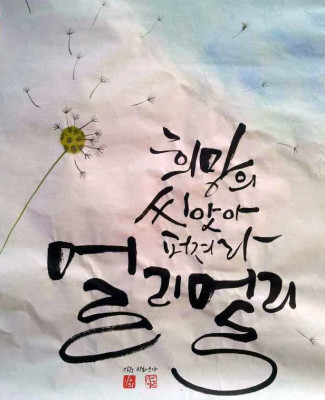 희망의
씨앗아
퍼져라
멀리멀리